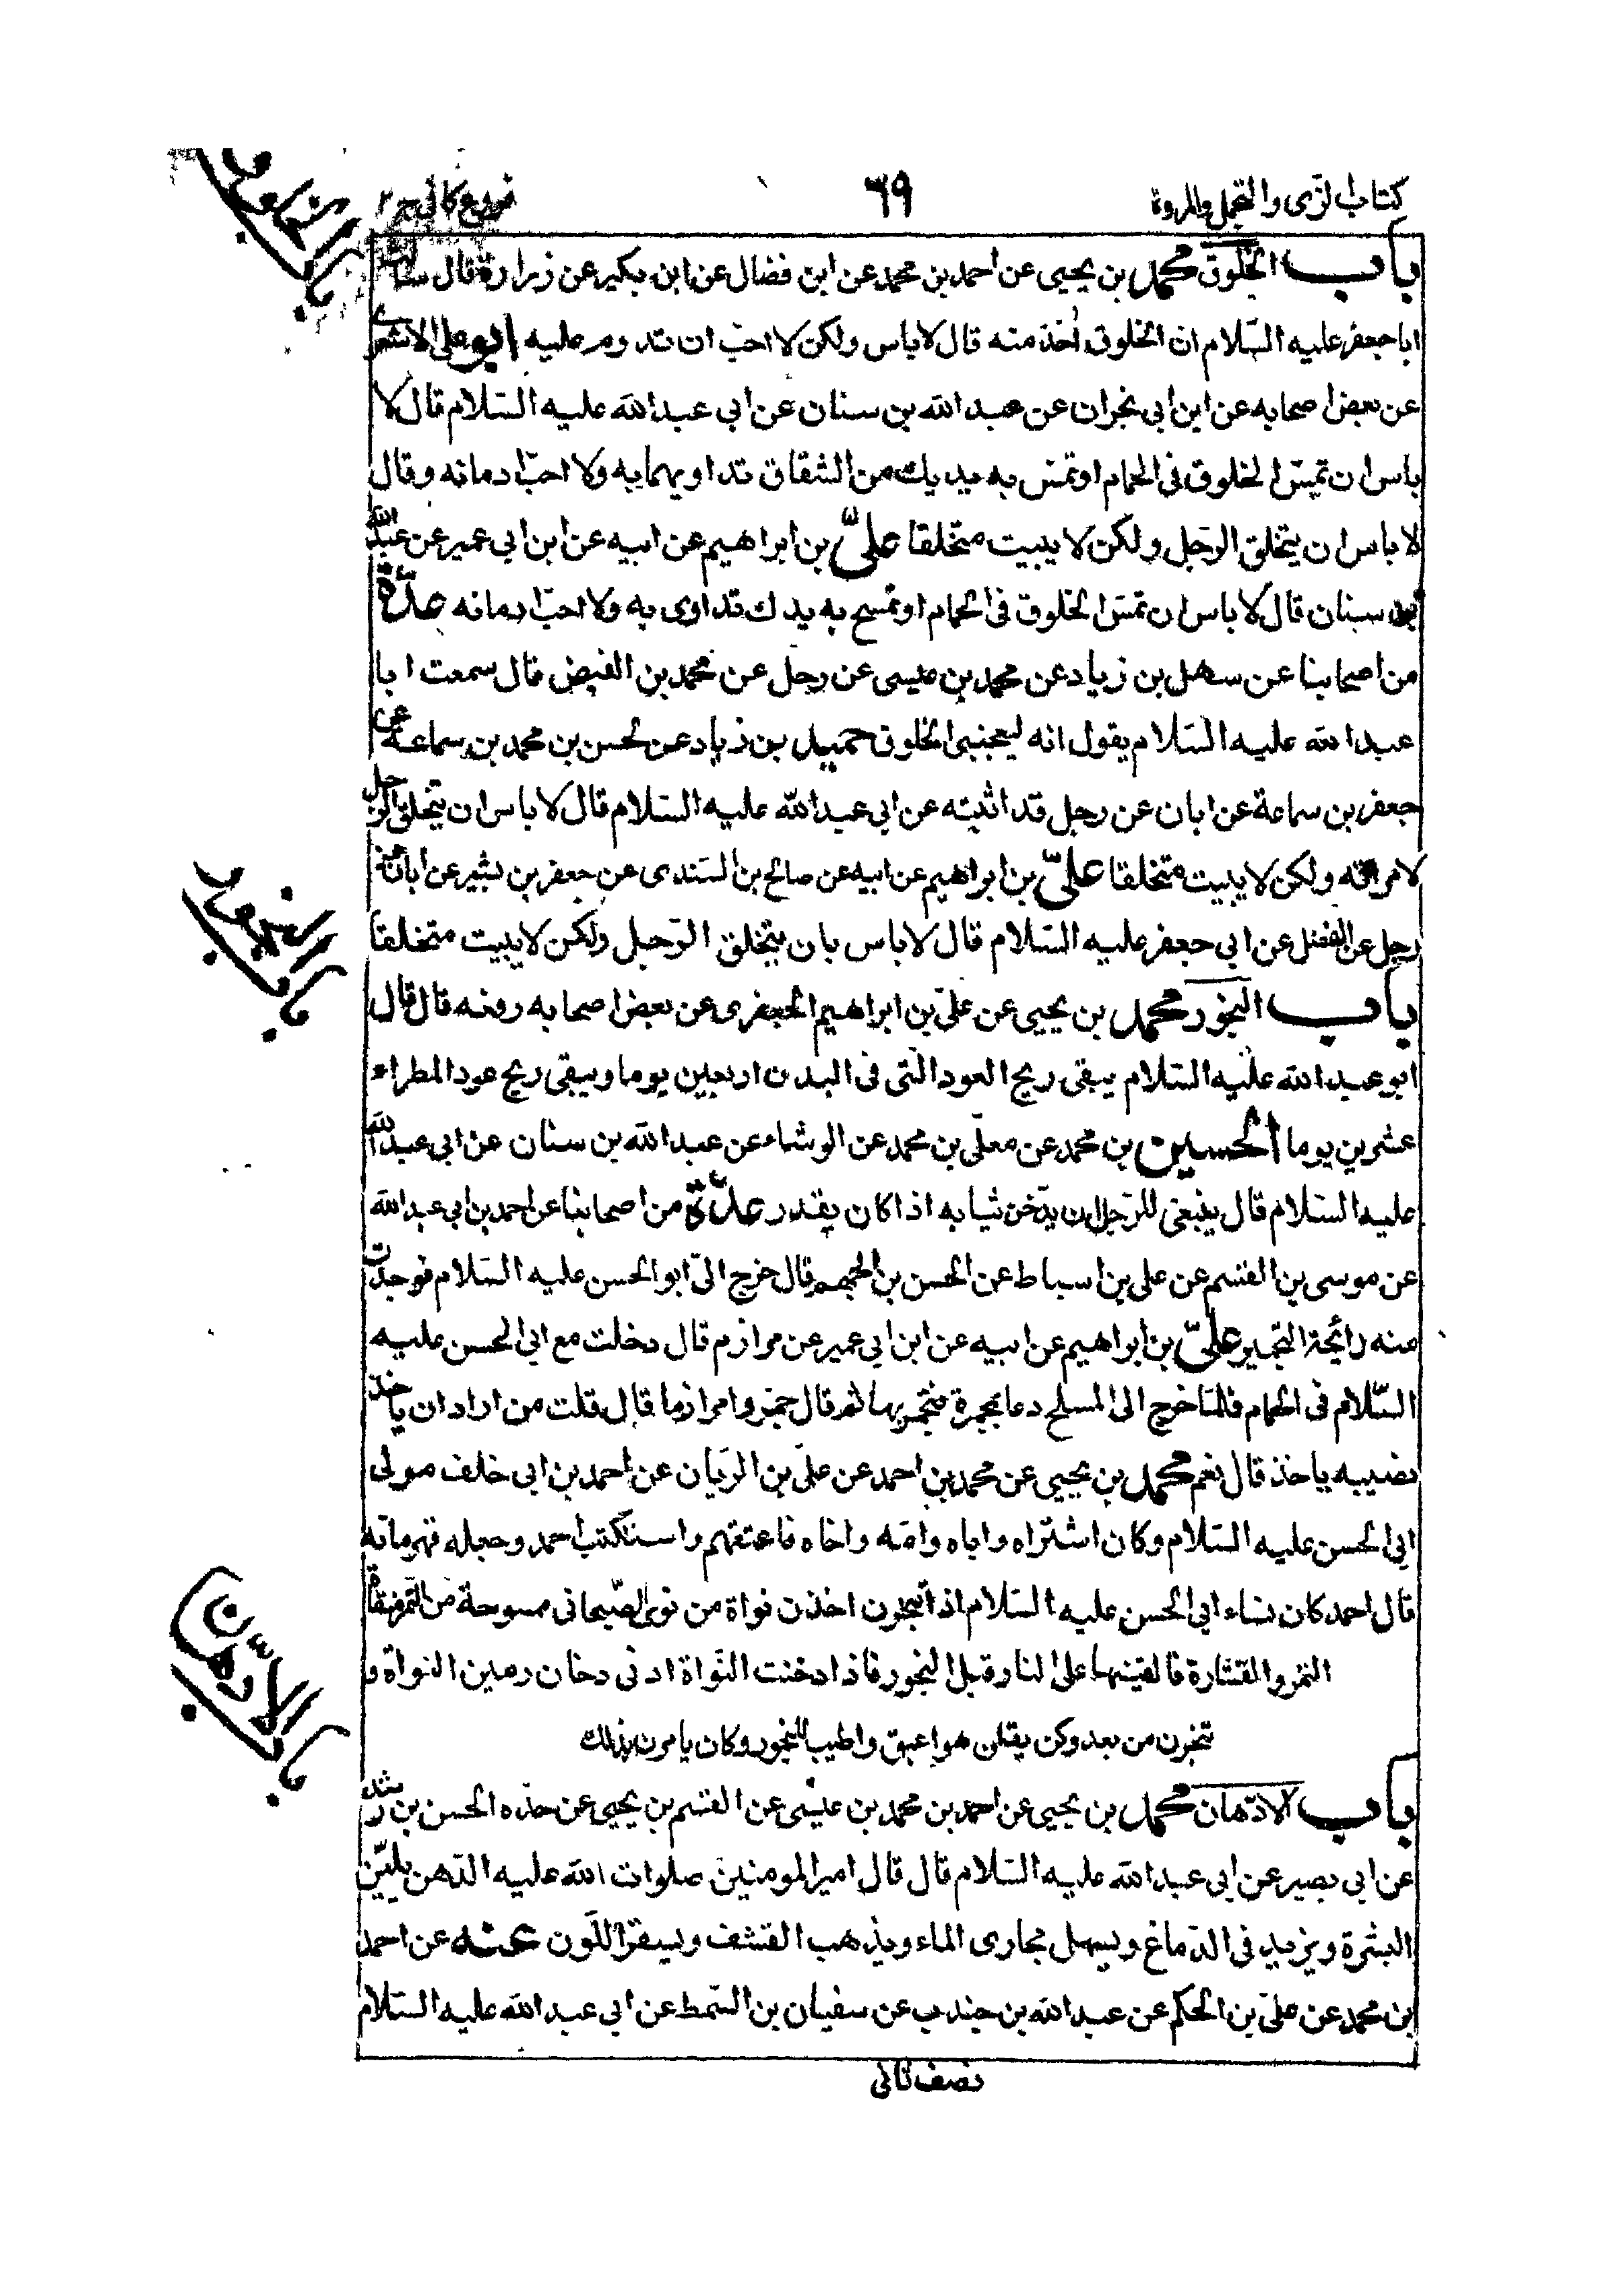 كتاب الزى والتجمل والمروة
٦٩
فروع كافى ج ٢
باب الخلوق
باب الخلوق محمد بن يحيى عن احمد بن محمد عن ابن فضال عن ابن بكير عن زرارة قال سالت
ابا جعفر عليه السّلام ان الخلوق أخذ منه قال لا باس ولكن لا احبّ ان تدوم عليه ابو على الاشعرى
عن بعض اصحابه عن ابن ابى نجران عن عبد الله بن سنان عن ابى عبد الله عليه السّلام قال لا
باس ان تمسّ الخلوق فى الحمام او تمسّ به يديك من الشقاق تداويهما به ولا احبّ ادمانه وقال
لا باس ان يتخلق الرّجل ولكن لا يبيت متخلقا علىّ بن ابراهيم عن ابيه عن ابن ابى عمير عن عبد الله
بن سنان قال لا باس ان تمسّ الخلوق فى الحمام او تمسح به يدك تداوى به ولا احبّ ادمانه عدّة
من اصحابنا عن سهل بن زياد عن محمد بن عيسى عن رجل عن محمد بن الفيض قال سمعت ابا
عبد الله عليه السّلام يقول انه ليعجبنى الخلوق حميد بن زياد عن الحسن بن محمد بن سماعة عن
جعفر بن سماعة عن ابان عن رجل قد اثبته عن ابى عبد الله عليه السّلام قال لا باس ان يتخلق الرّجل
لامراته ولكن لا يبيت متخلقا علىّ بن ابراهيم عن ابيه عن صالح بن السّندى عن جعفر بن بشير عن ابان عن
رجل عن الفضل عن ابى جعفر عليه السّلام قال لا باس بان يتخلق الرّجل ولكن لا يبيت متخلقا
باب البخور
باب البخور محمد بن يحيى عن علىّ بن ابراهيم الجعفرى عن بعض اصحابه رفعه قال قال
ابو عبد الله عليه السّلام يبقى ريح العود التى فى البدن اربعين يوما ويبقى ريح عود المطراء
عشرين يوما الحسين بن محمد عن معلّى بن محمد عن الوشاء عن عبد الله بن سنان عن ابى عبد الله
عليه السّلام قال ينبغى للرّجل ان يدّخن ثيابه اذا كان يقدر عدّة من اصحابنا عن احمد بن ابى عبد الله
عن موسى بن القسم عن على بن اسباط عن الحسن بن الجهم قال خرج الىّ ابو الحسن عليه السّلام فوجدت
منه رائحة التجمير علىّ بن ابراهيم عن ابيه عن ابن ابى عمير عن مرازم قال دخلت مع ابى الحسن عليه
السّلام فى الحمام فلمّا خرج الى المسلح دعا بمجمرة فتجمر بها ثم قال جمّروا مرازما قال قلت من اراد ان ياخذ
نصيبه ياخذ قال نعم محمد بن يحيى عن محمد بن احمد عن علىّ بن الرّيان عن احمد بن ابى خلف مولى
ابى الحسن عليه السّلام وكان اشتراه واباه وامّه واخاه فاعتقهم واستكتب احمد وجعله قهرمانه
قال احمد كان نساء ابى الحسن عليه السّلام اذا تبخرن اخذن نواة من نوى الصّيحانى ممسوحة من التمر منقاة
التمر والقشارة فالقينها على النار قبل البخور فاذا دخنت النّواة ادنى دخان رمين النواة و
تبخرن من بعد وكن يقلن هو اعبق واطيب للبخور وكان يامرن بذلك
باب الادّهان
باب الادّهان محمد بن يحيى عن احمد بن محمد بن عيسى عن القسم بن يحيى عن جدّه الحسن بن راشد
عن ابى بصير عن ابى عبد الله عليه السّلام قال قال امير المومنين صلوات الله عليه الدّهن يليّن
البشرة ويزيد فى الدّماغ ويسهل مجارى الماء ويذهب القشف ويسفر اللّون عنه عن احمد
بن محمد عن علىّ بن الحكم عن عبد الله بن جندب عن سفيان بن السّمط عن ابى عبد الله عليه السّلام
نصف ثانى